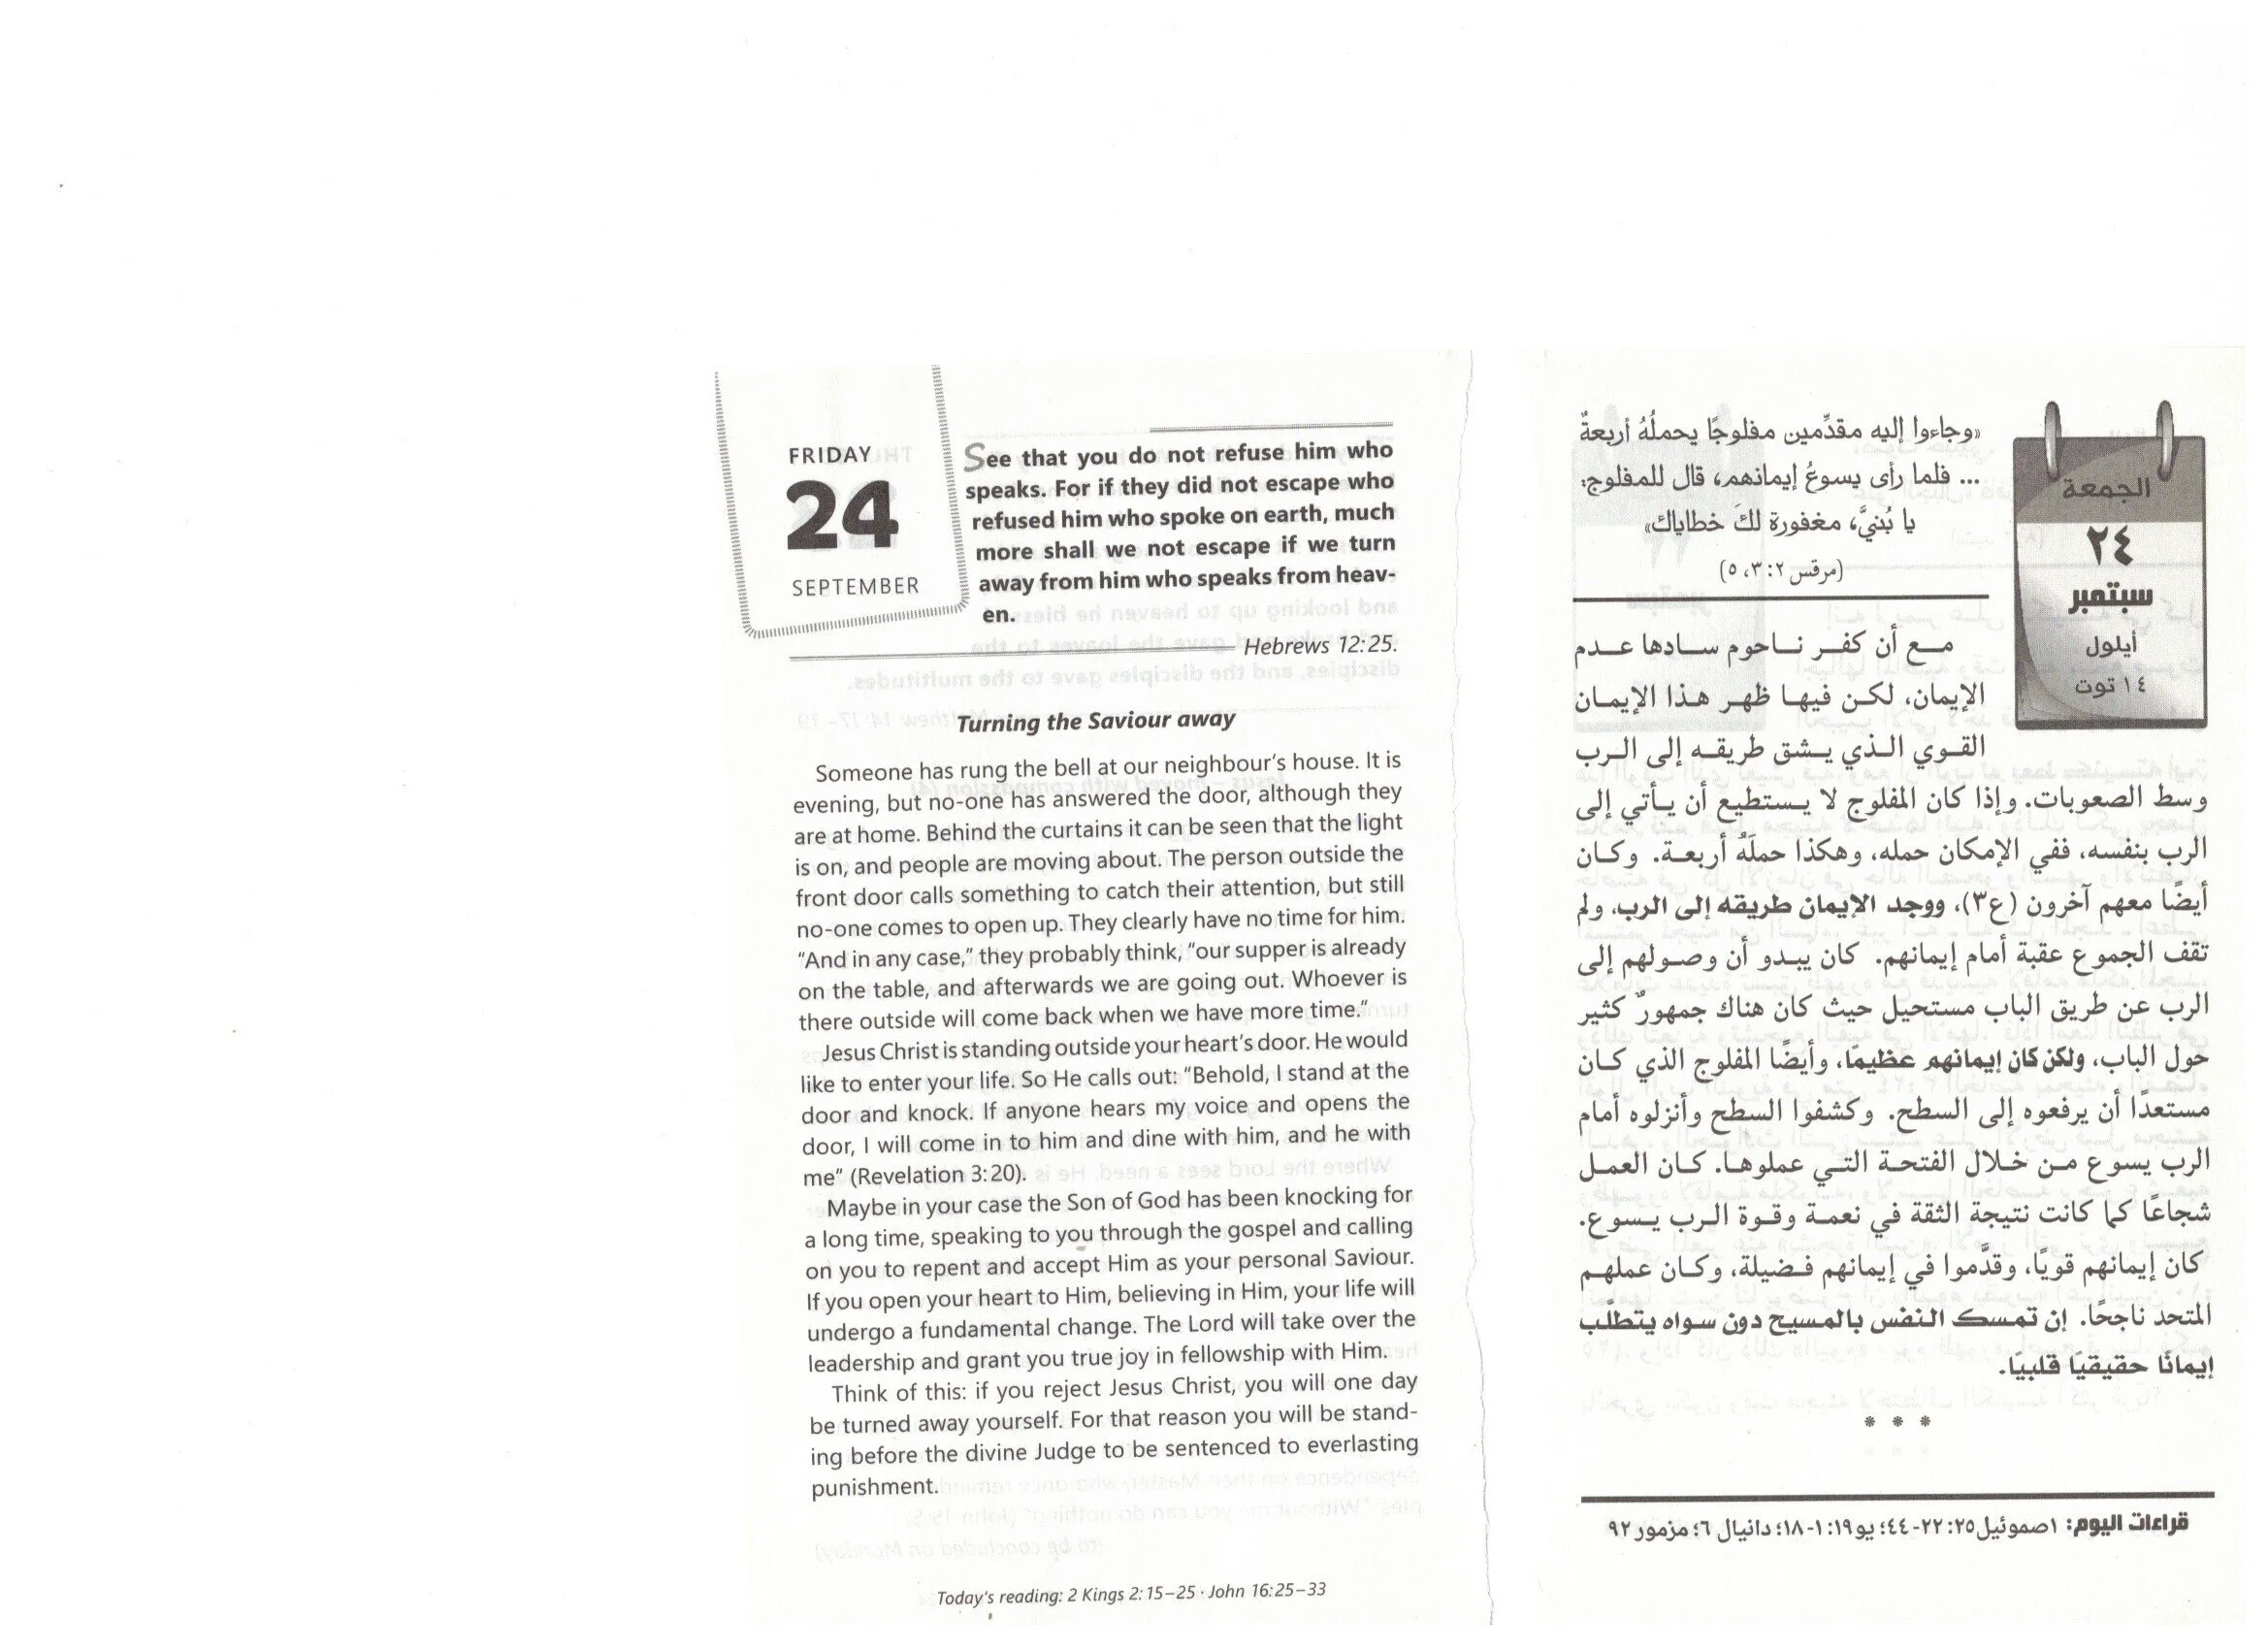 FRIDAY
24
SEPTEMBER
See that you do not refuse him who
speaks. For if they did not escape who
refused him who spoke on earth, much
more shall we not escape if we turn
away from him who speaks from heav-
en.
Hebrews 12:25.
Turning the Saviour away
Someone has rung the bell at our neighbour's house. It is
evening, but no-one has answered the door, although they
are at home. Behind the curtains it can be seen that the light
is on, and people are moving about. The person outside the
front door calls something to catch their attention, but still
no-one comes to open up. They clearly have no time for him.
"And in any case," they probably think, "our supper is already
on the table, and afterwards we are going out. Whoever is
there outside will come back when we have more time."
Jesus Christ is standing outside your heart's door. He would
like to enter your life. So He calls out: "Behold, I stand at the
door and knock. If anyone hears my voice and opens the
door, I will come in to him and dine with him, and he with
me" (Revelation 3:20).
Maybe in your case the Son of God has been knocking for
a long time, speaking to you through the gospel and calling
on you to repent and accept Him as your personal Saviour.
If you open your heart to Him, believing in Him, your life will
undergo a fundamental change. The Lord will take over the
leadership and grant you true joy in fellowship with Him.
Think of this: if you reject Jesus Christ, you will one day
be turned away yourself. For that reason you will be stand-
ing before the divine Judge to be sentenced to everlasting
punishment.
Today's reading: 2 Kings 2:15–25 · John 16:25–33
الجمعة
٢٤
سبتمبر
أيلول
١٤ توت
«وجاءوا إليه مقدِّمين مفلوجًا يحملُهُ أربعةٌ
... فلما رأى يسوعُ إيمانهم، قال للمفلوج:
يا بُنيَّ، مغفورة لكَ خطاياك»
(مرقس ٢: ٣، ٥)
مع أن كفر ناحوم سادها عدم
الإيمان، لكن فيها ظهر هذا الإيمان
القوي الذي يشق طريقه إلى الرب
وسط الصعوبات. وإذا كان المفلوج لا يستطيع أن يأتي إلى
الرب بنفسه، ففي الإمكان حمله، وهكذا حملَهُ أربعة. وكان
أيضًا معهم آخرون (ع٣)، ووجد الإيمان طريقه إلى الرب، ولم
تقف الجموع عقبة أمام إيمانهم. كان يبدو أن وصولهم إلى
الرب عن طريق الباب مستحيل حيث كان هناك جمهورٌ كثير
حول الباب، ولكن كان إيمانهم عظيمًا، وأيضًا المفلوج الذي كان
مستعدًا أن يرفعوه إلى السطح. وكشفوا السطح وأنزلوه أمام
الرب يسوع من خلال الفتحة التي عملوها. كان العمل
شجاعًا كما كانت نتيجة الثقة في نعمة وقوة الرب يسوع.
كان إيمانهم قويًا، وقدَّموا في إيمانهم فضيلة، وكان عملهم
المتحد ناجحًا. إن تمسك النفس بالمسيح دون سواه يتطلَّب
إيمانًا حقيقيًا قلبيًا.
* * *
قراءات اليوم: ١صموئيل٢٥: ٢٢-٤٤؛ يو١٩: ١-١٨؛ دانيال ٦؛ مزمور٩٢